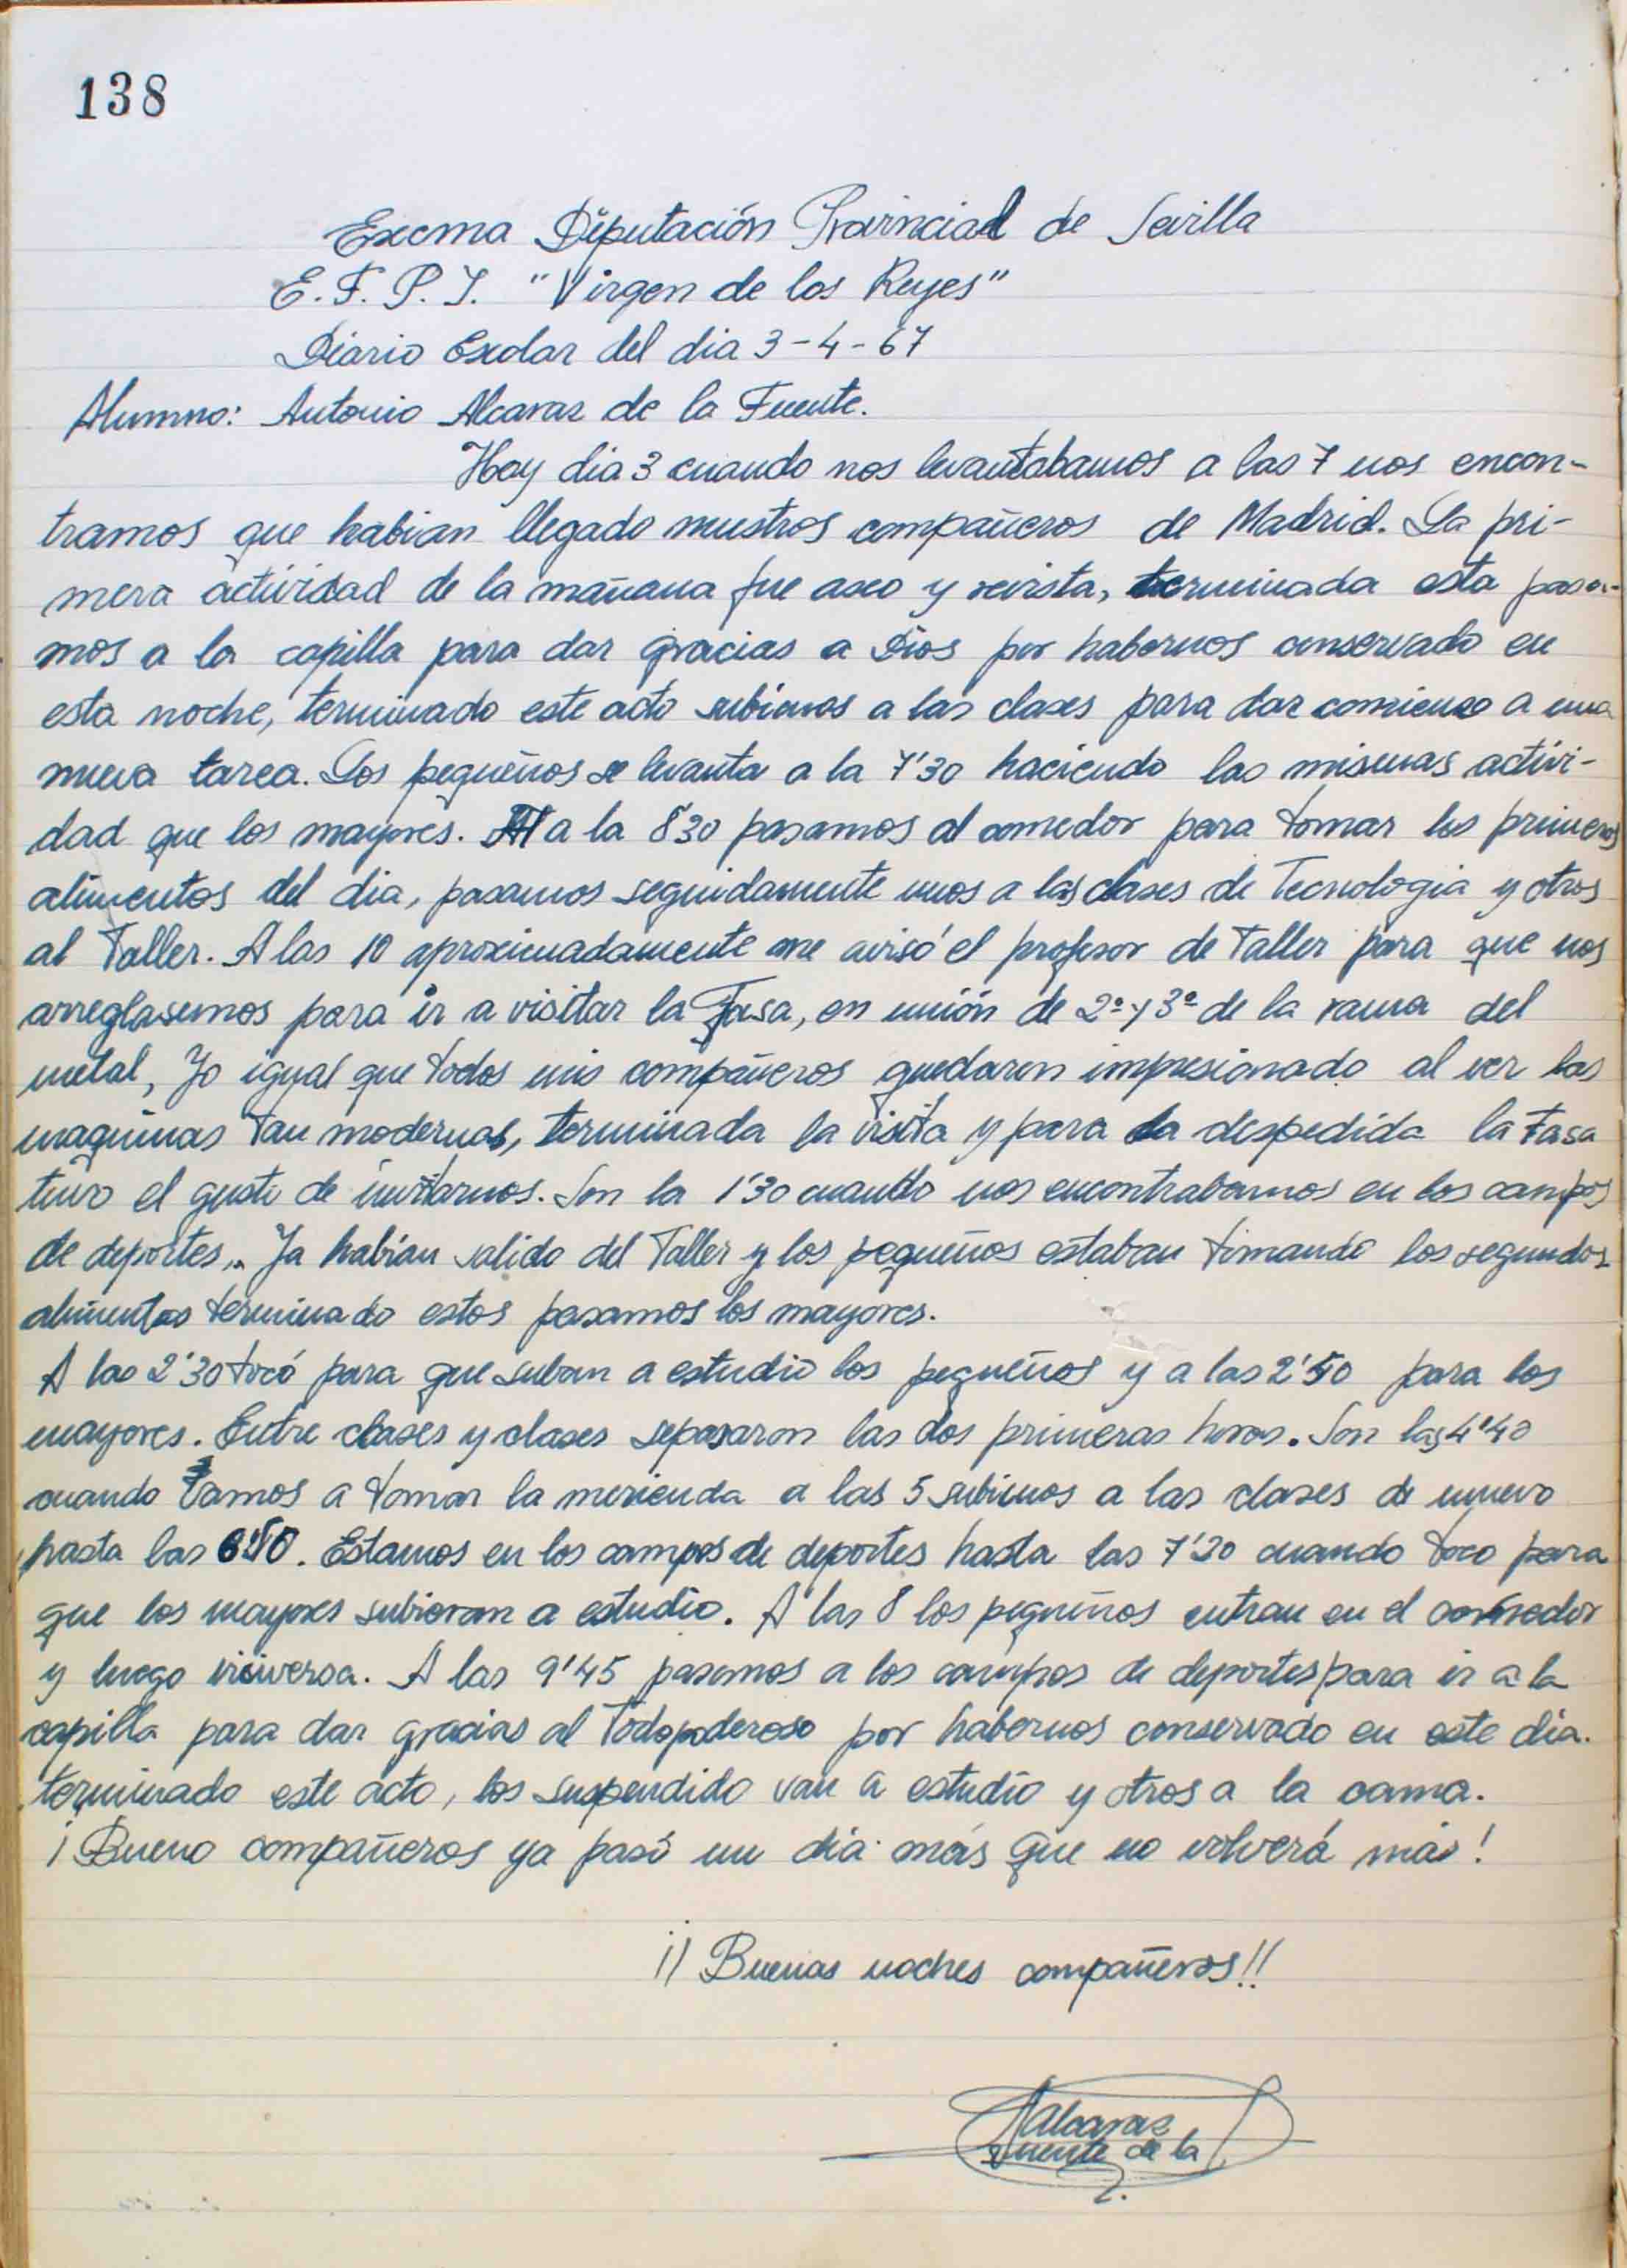 138
Excma Diputación Provincial de Sevilla
E. F. P. I. "Virgen de los Reyes"
Diario Escolar del dia 3-4-67
Alumno: Antonio Alcaraz de la Fuente.
Hoy dia 3 cuando nos levantabamos a las 7 nos encon-
tramos que habian llegado nuestros compañeros de Madrid. La pri-
mera actividad de la mañana fue aseo y revista, terminada esta pasa-
mos a la capilla para dar gracias a Dios por habernos conservado en
esta noche, terminado este acto subimos a las clases para dar comienzo a una
nueva tarea. Los pequeños se levanta a la 7'30 haciendo las mismas activi-
dad que los mayores. a la 8'30 pasamos al comedor para tomar los primeros
alimentos del dia, pasamos seguidamente unos a las clases de Tecnologia y otros
al Taller. A las 10 aproximadamente me avisó el profesor de Taller para que nos
arreglasemos para ir a visitar la Fasa, en unión de 2º y 3º de la rama del
metal, Yo igual que todos mis compañeros quedaron impresionado al ver las
maquinas tan modernas, terminada la visita y para la despedida la Fasa
tuvo el gusto de invitarnos. Son la 1'30 cuando nos encontrabamos en los campos
de deportes... Ya habian salido del Taller y los pequeños estaban tomando los segundos
alimentos terminado estos pasamos los mayores.
A las 2'30 tocó para que suban a estudio los pequeños y a las 2'50 para los
mayores. Entre clases y clases separaron las dos primeras horas. Son las 4'40
cuando vamos a tomar la merienda a las 5 subimos a las clases de nuevo
hasta las. Estamos en los campos de deportes hasta las 7'30 cuando toco para
que los mayores subieran a estudio. A las 8 los pequeños entran en el comedor
y luego viciversa. A las 9'45 pasamos a los campos de deportes para ir a la
capilla para dar gracias al Todopoderoso por habernos conservado en este dia.
terminado este acto, los suspendido van a estudio y otros a la cama.
¡Bueno compañeros ya pasó un dia más que no volverá más!
¡¡Buenas noches compañeros!!
Alcaraz
Fuente de la